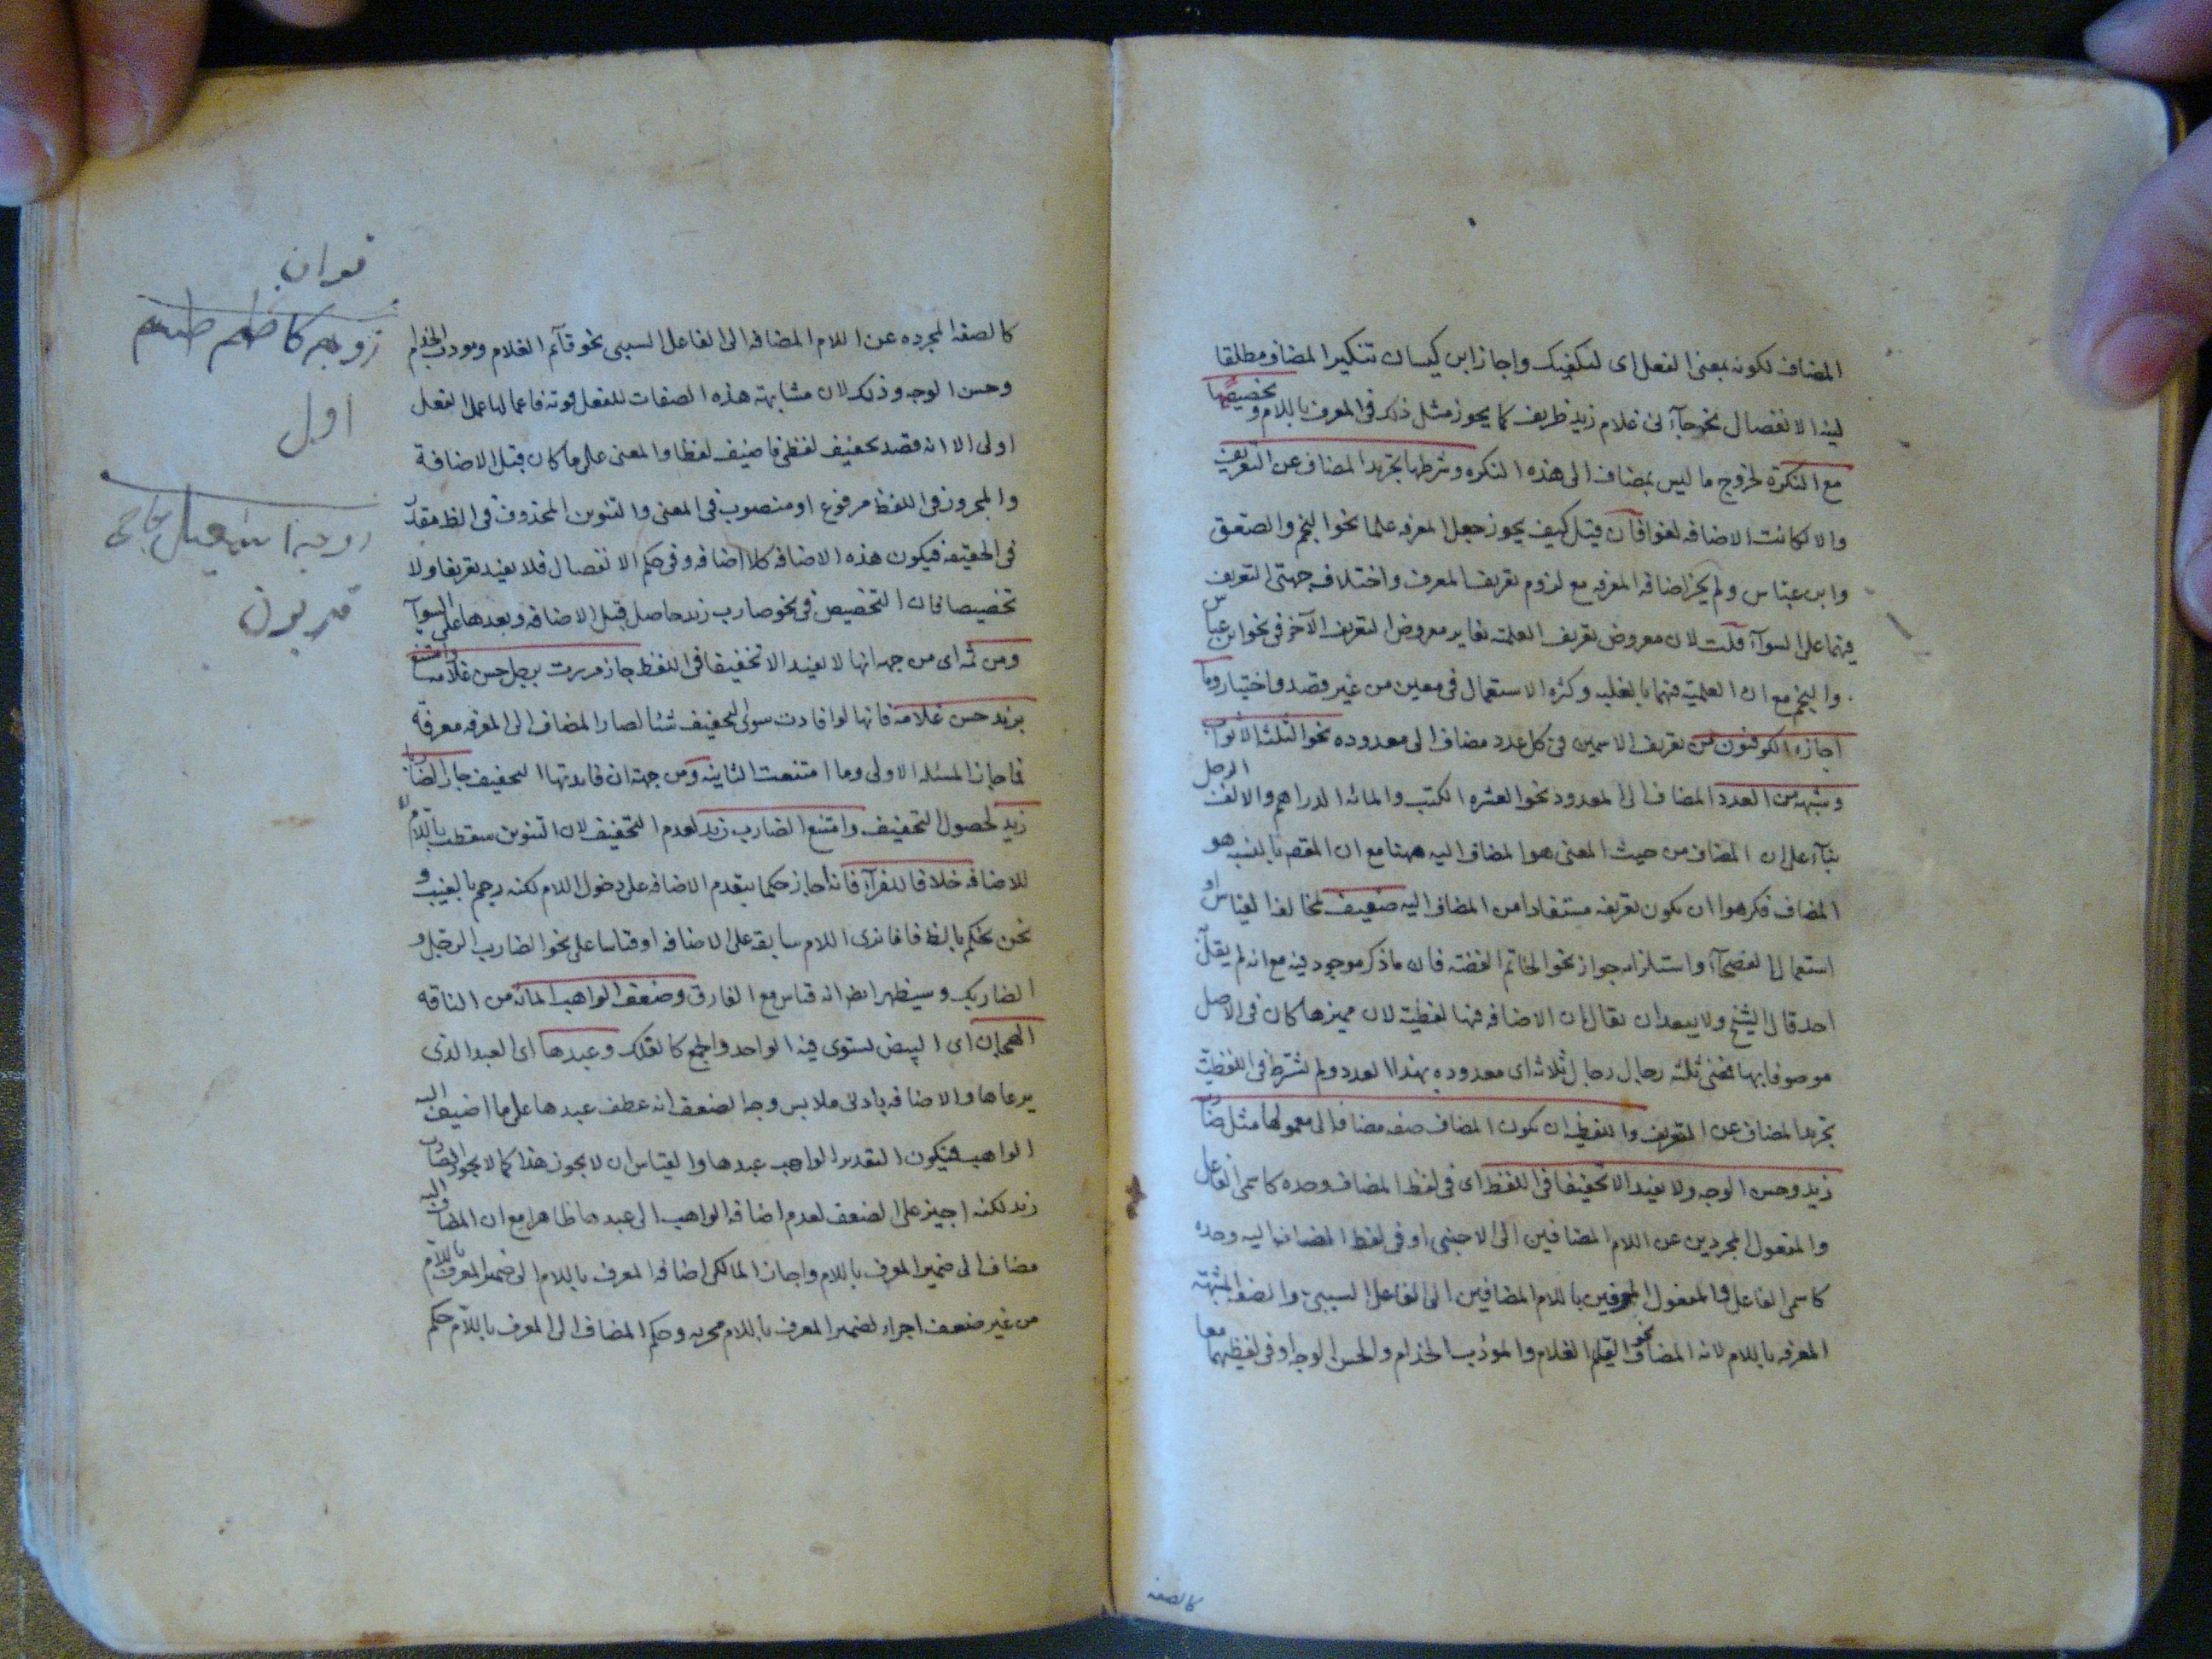 المضاف لكونه بمعنى الفعل اى لتكفيك واجاز ابن كيسان تنكير المضاف مطلقا
لنية الانفصال نحو جاءنى غلام زيد ظريف كما يجوز مثل ذلك فى المعرف باللام و تخصيصها
مع النكرة لخروج ما ليس بمضاف الى هذه النكره وشرطها تجريد المضاف عن التعريف
والا لكانت الاضافه لغوا فان قيل كيف يجوز جعل المعرفه علما نحو النجم والصعق
وابن عباس ولم يجز اضافه المعرفه مع لزوم تعريف المعرف واختلاف جهتى التعريف
فيهما على السواء قلت لان معروض تعريف العلمية تغاير معروض التعريف الآخر فى نحو ابن عباس
والنجم مع ان العلمية فيهما بالغلبه وكثره الاستعمال فى معين من غير قصد واختيار وما
اجازه الكوفيون من تعريف الاسمين فى كل عدد مضاف الى معدوده نحو الثلثه الاثواب
وشبهه من العدد المضاف الى المعدود نحو العشره الكتب والمائه الدراهم والالف الرجل
بناء على ان المضاف من حيث المعنى هو المضاف اليه ههنا مع ان المقصر بالنسبه هو
المضاف فكرهوا ان يكون تعريفه مستفادا من المضاف اليه ضعيف لمخالفه القياس و
استعمال الفصحاء واستلزامه جواز نحو الخاتم الفضه فان ما ذكر موجود فيه مع انه لم يقل به
احد قال الشيخ ولا يبعد ان يقال ان الاضافه فيها لفظية لان مميزها كان فى الاصل
موصوفا بها فمعنى ثلثه رجال رجال ثلاثه اى معدوده بهذا العدد ولم يشترط فى اللفظية
تجريد المضاف عن التعريف واللفظيه ان يكون المضاف صفه مضافه الى معمولها مثل ضارب
زيد وحسن الوجه ولا يفيد الا تخفيفا فى اللفظ اى فى لفظ المضاف وحده كاسمى الفاعل
والمفعول المجردين عن اللام المضافين الى الاجنبى او فى لفظ المضاف اليه وحده
كاسمى الفاعل والمفعول المعرفين باللام المضافين الى الفاعل السببى والصفه المشبهة
المعرفه باللام لانه المضاف نحو القائم الغلام والمؤدب الخدام والحسن الوجه او فى لفظيهما معا
كالصفه
كالصفه المجرده عن اللام المضافه الى الفاعل السببى نحو قائم الغلام ومؤدب الخدام
وحسن الوجه وذلك لان مشابهة هذه الصفات للفعل قوته فاعمالها عمل الفعل
اولى الا انه قصد تخفيف لفظى فاضيف لفظا والمعنى على ما كان قبل الاضافة
والمجرور فى اللفظ مرفوع او منصوب فى المعنى والتنوين المحذوف فى اللفظ مقدر
فى الحقيقه فيكون هذه الاضافه كلا اضافه وفى حكم الانفصال فلا يفيد تعريفا ولا
تخصيصا فان التخصيص فى نحو ضارب زيد حاصل قبل الاضافه وبعدها على السواء
ومن ثمه اى من جهه انها لا يفيد الا تخفيفا فى اللفظ جاز مررت برجل حسن غلامه وامتنع
بزيد حسن غلامه فانها لو افادت سوى التخفيف شيئا لصار المضاف الى المعرفه معرفه
فما جاز المسئله الاولى وما امتنعت الثانيه ومن جهة ان فايدتها التخفيف جاز الضاربا
زيد لحصول التخفيف وامتنع الضارب زيد لعدم التخفيف لان التنوين سقطت باللام لا
للاضافه خلافا للفراء فانه اجاز حكما بتقدم الاضافه على دخول اللام لكنه رجم بالغيب و
نحن نحكم بالظ فانا نرى اللام سابقه على الاضافه او قياسا على نحو الضارب الرجل و
الضاربك وسيظهر ايضا انه قياس مع الفارق وضعف الواهب المائه من الناقه
الهجان اى البيض يستوى فيه الواحد والجمع كالفلك وعبدها اى العبد الذى
يرعاها والاضافه بادنى ملابس وجه الضعف انه عطف عبدها على ما اضيف اليه
الواهب فيكون التقدير الواهب عبدها والقياس ان لا يجوز هذا كما لا يجوز الضارب
زيد لكنه اجيز على الضعف لعدم اضافه الواهب الى عبدها ظاهرا مع ان المضاف اليه
مضاف الى ضمير المعرف باللام واجاز المالكى اضافه المعرف باللام الى ضمير المعرف باللام
من غير ضعف اجراء لضمير المعرف باللام مجريه وحكم المضاف الى المعرف باللام حكم
اول